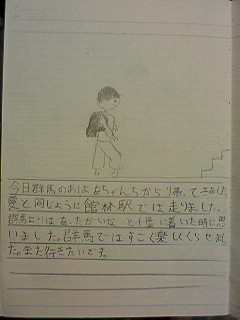 今日群馬のおばあちゃんちから帰ってきました。
夏と同じように館林駅では走りました。
群馬よりはあったかいな と千葉に着いた時に思
いました。群馬ではすごく楽しくくらせまし
た。また行きたいです。